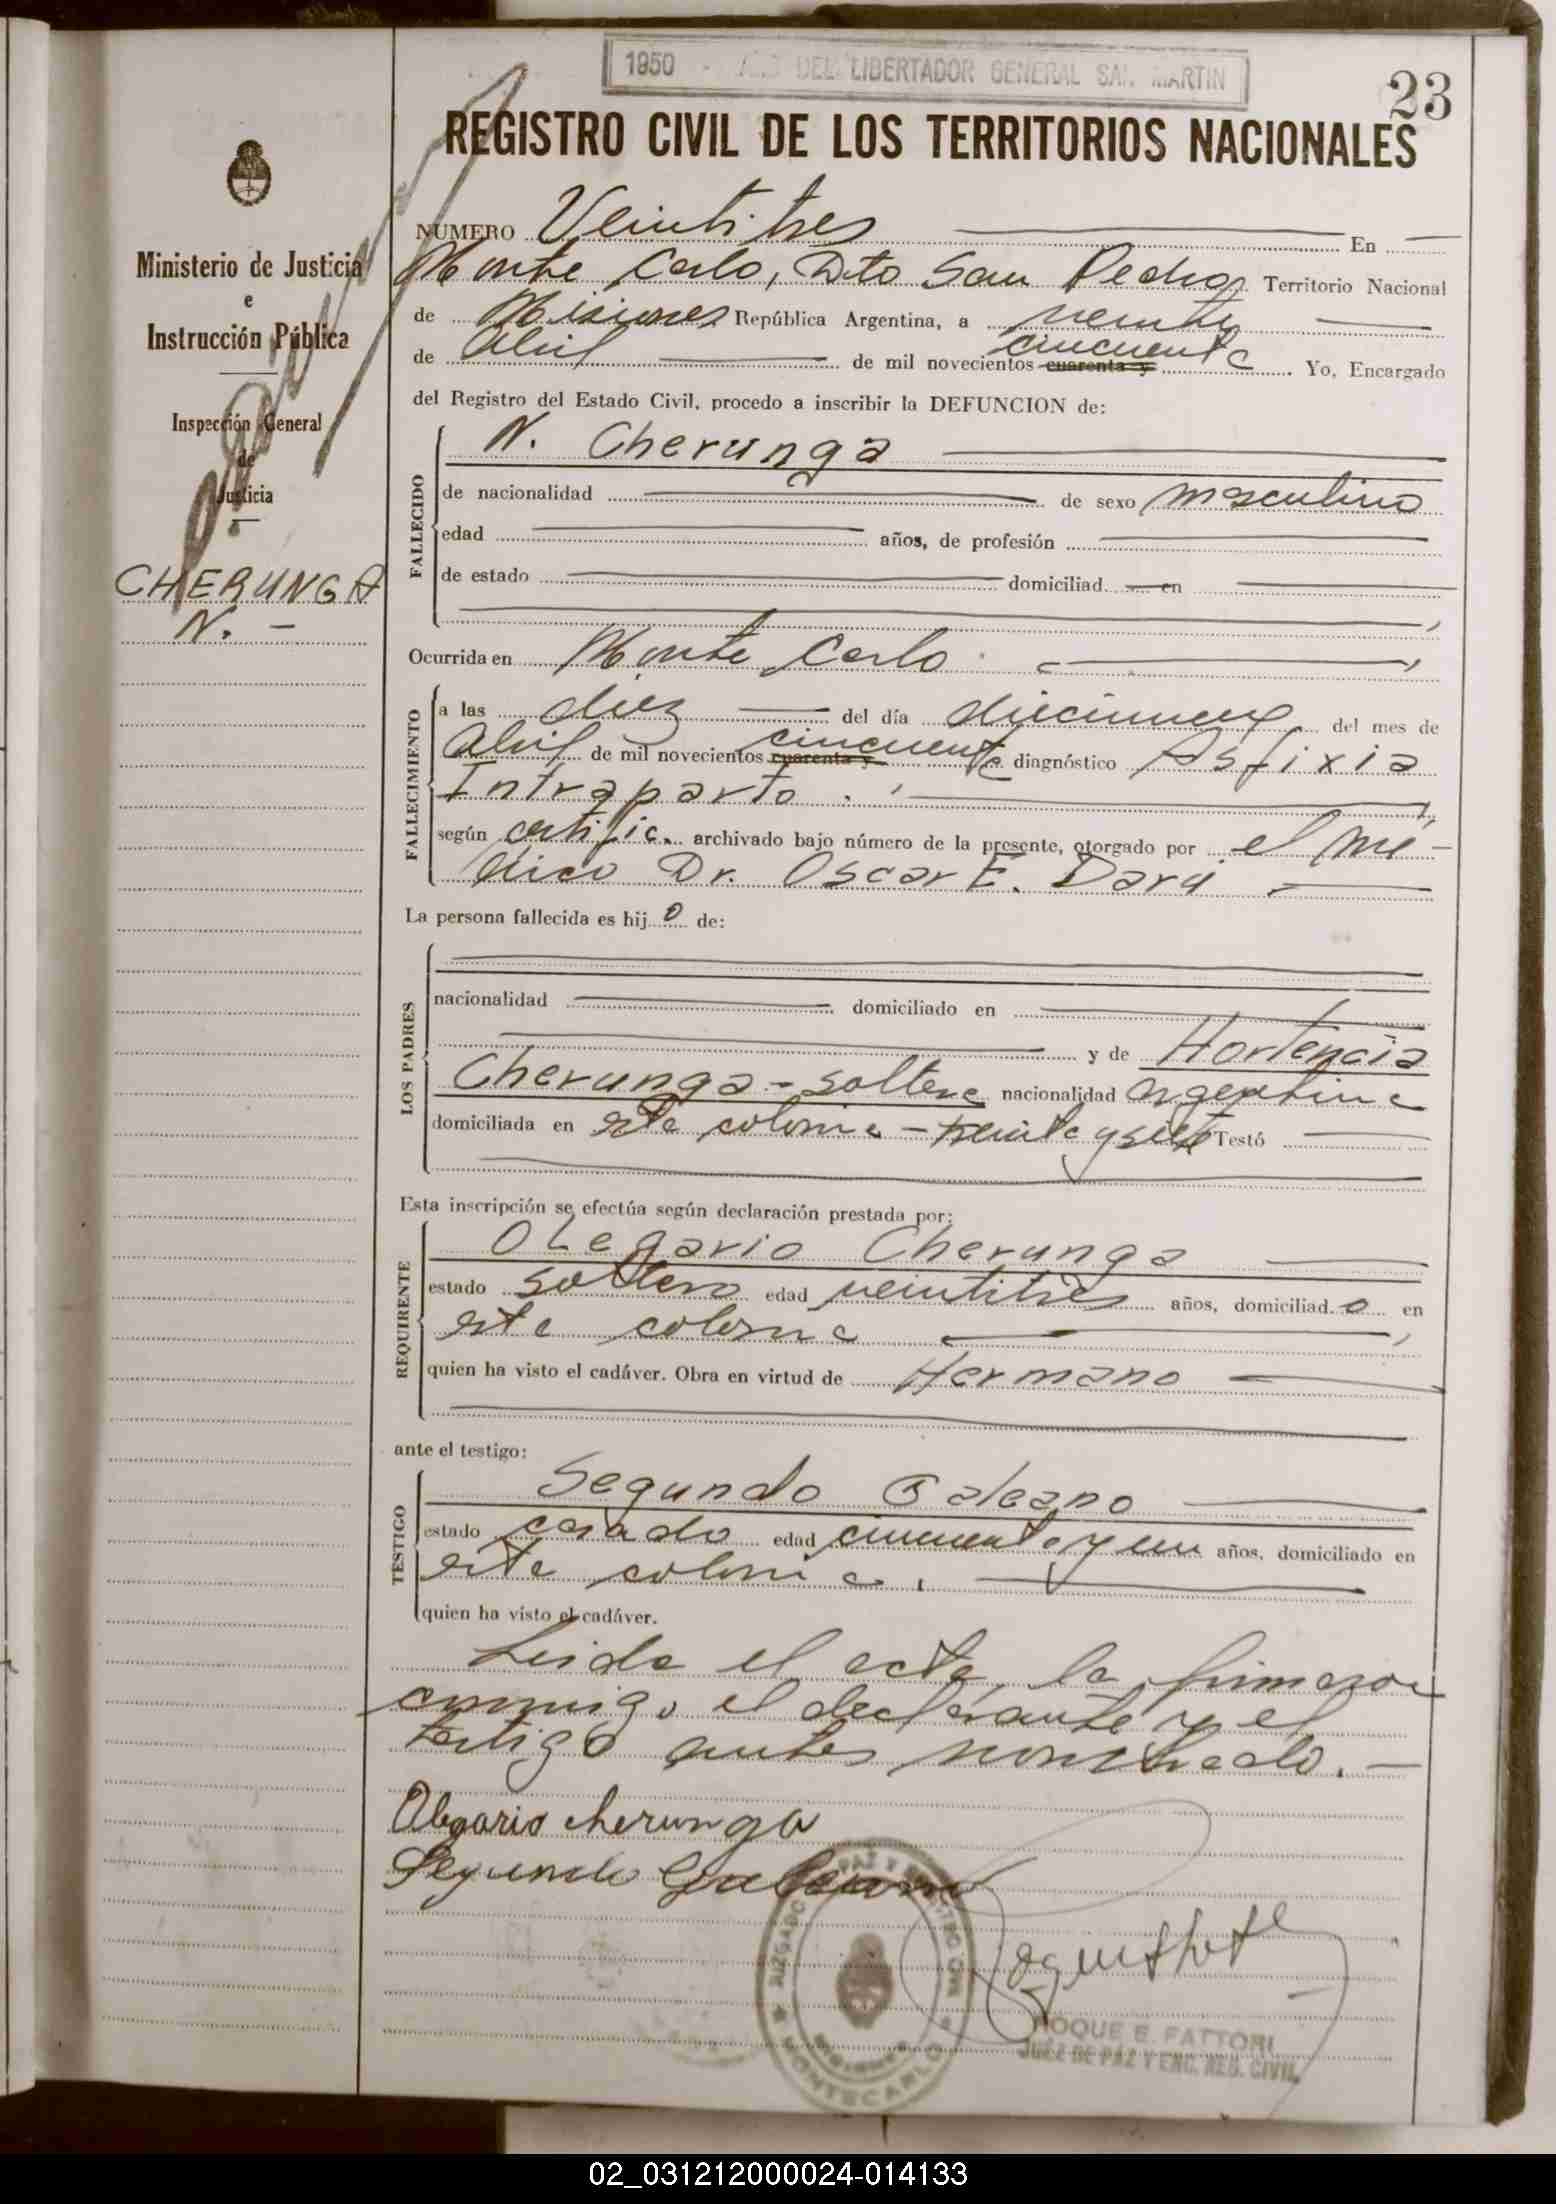 1950 - AÑO DEL LIBERTADOR GENERAL SAN MARTIN
23
REGISTRO CIVIL DE LOS TERRITORIOS NACIONALES
Ministerio de Justicia
e
Instrucción Pública
Inspección General
de
Justicia
CHERUNGA
N. -
NUMERO Veintitres En
Monte Carlo, Dto San Pedro Territorio Nacional
de Misiones República Argentina, a veinte
de Abril de mil novecientos cuarenta y cincuenta Yo, Encargado
del Registro del Estado Civil, procedo a inscribir la DEFUNCION de:
FALLECIDO
N. Cherunga
de nacionalidad de sexo masculino
edad años, de profesión
de estado domiciliad en
Ocurrida en Monte Carlo
FALLECIMIENTO
a las diez del día diecinueve del mes de
Abril de mil novecientos cuarenta y cincuenta diagnóstico Asfixia
Intraparto.
según certific. archivado bajo número de la presente, otorgado por el mé-
dico Dr. Oscar E. Darú
La persona fallecida es hijo de:
LOS PADRES
nacionalidad domiciliado en
y de Hortencia
Cherunga - soltera nacionalidad argentina
domiciliada en esta colonia - treinta y siete Testó
Esta inscripción se efectúa según declaración prestada por:
REQUIRENTE
Olegario Cherunga
estado soltero edad veintitrés años, domiciliado en
esta colonia
quien ha visto el cadáver. Obra en virtud de Hermano
ante el testigo:
TESTIGO
Segundo Galeano
estado casado edad cincuenta y un años, domiciliado en
esta colonia.
quien ha visto el cadáver.
Leida el acta, la firmaron
conmigo el declarante y el
testigo antes nombrado. -
Olegario cherunga
Segundo Galeano
JUZGADO DE PAZ Y REGISTRO CIVIL
MISIONES
MONTECARLO
ROQUE E. FATTORI
JUEZ DE PAZ Y ENC. REG. CIVIL
02_031212000024-014133